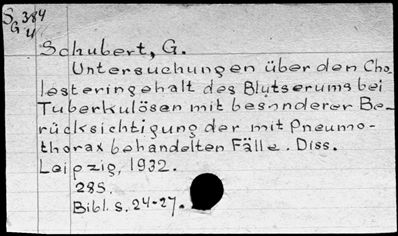 S 384
G 4
Schubert, G.
Untersuchungen über den Cho-
lesteringehalt des Blutserums bei
Tuberkulösen mit besonderer Be-
rücksichtigung der mit Pneumo-
thorax behandelten Fälle. Diss.
Leipzig, 1932.
28S.
Bibl. S. 24-27.